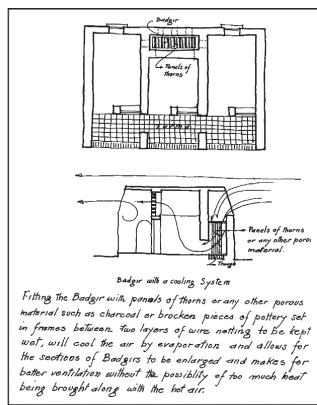 Badgir
Panels of
thorns
Tarma
Panels of thorns
or any other porous
material.
Trough
Badgir with a cooling System
Fitting the Badgir with panels of thorns or any other porous
material such as charcoal or brocken pieces of pottery set
in frames between two layers of wire netting to be kept
wet, will cool the air by evaporation and allows for
the sections of Badgirs to be enlarged and makes for
better ventilation without the possibility of too much heat
being brought along with the hot air.